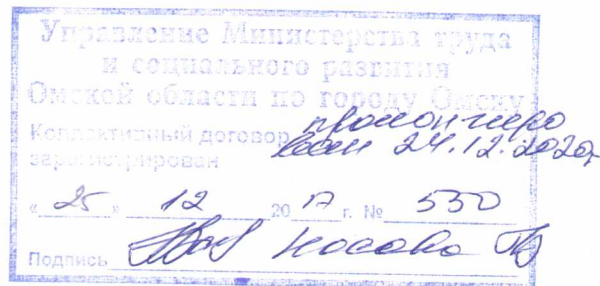 Управление Министерства труда
и социального развития
Омской области по городу Омску
Коллективный договор пролонгиро
зарегистрирован ван 24.12.2020г
«25» 12 2017 г. № 550
Подпись Носова